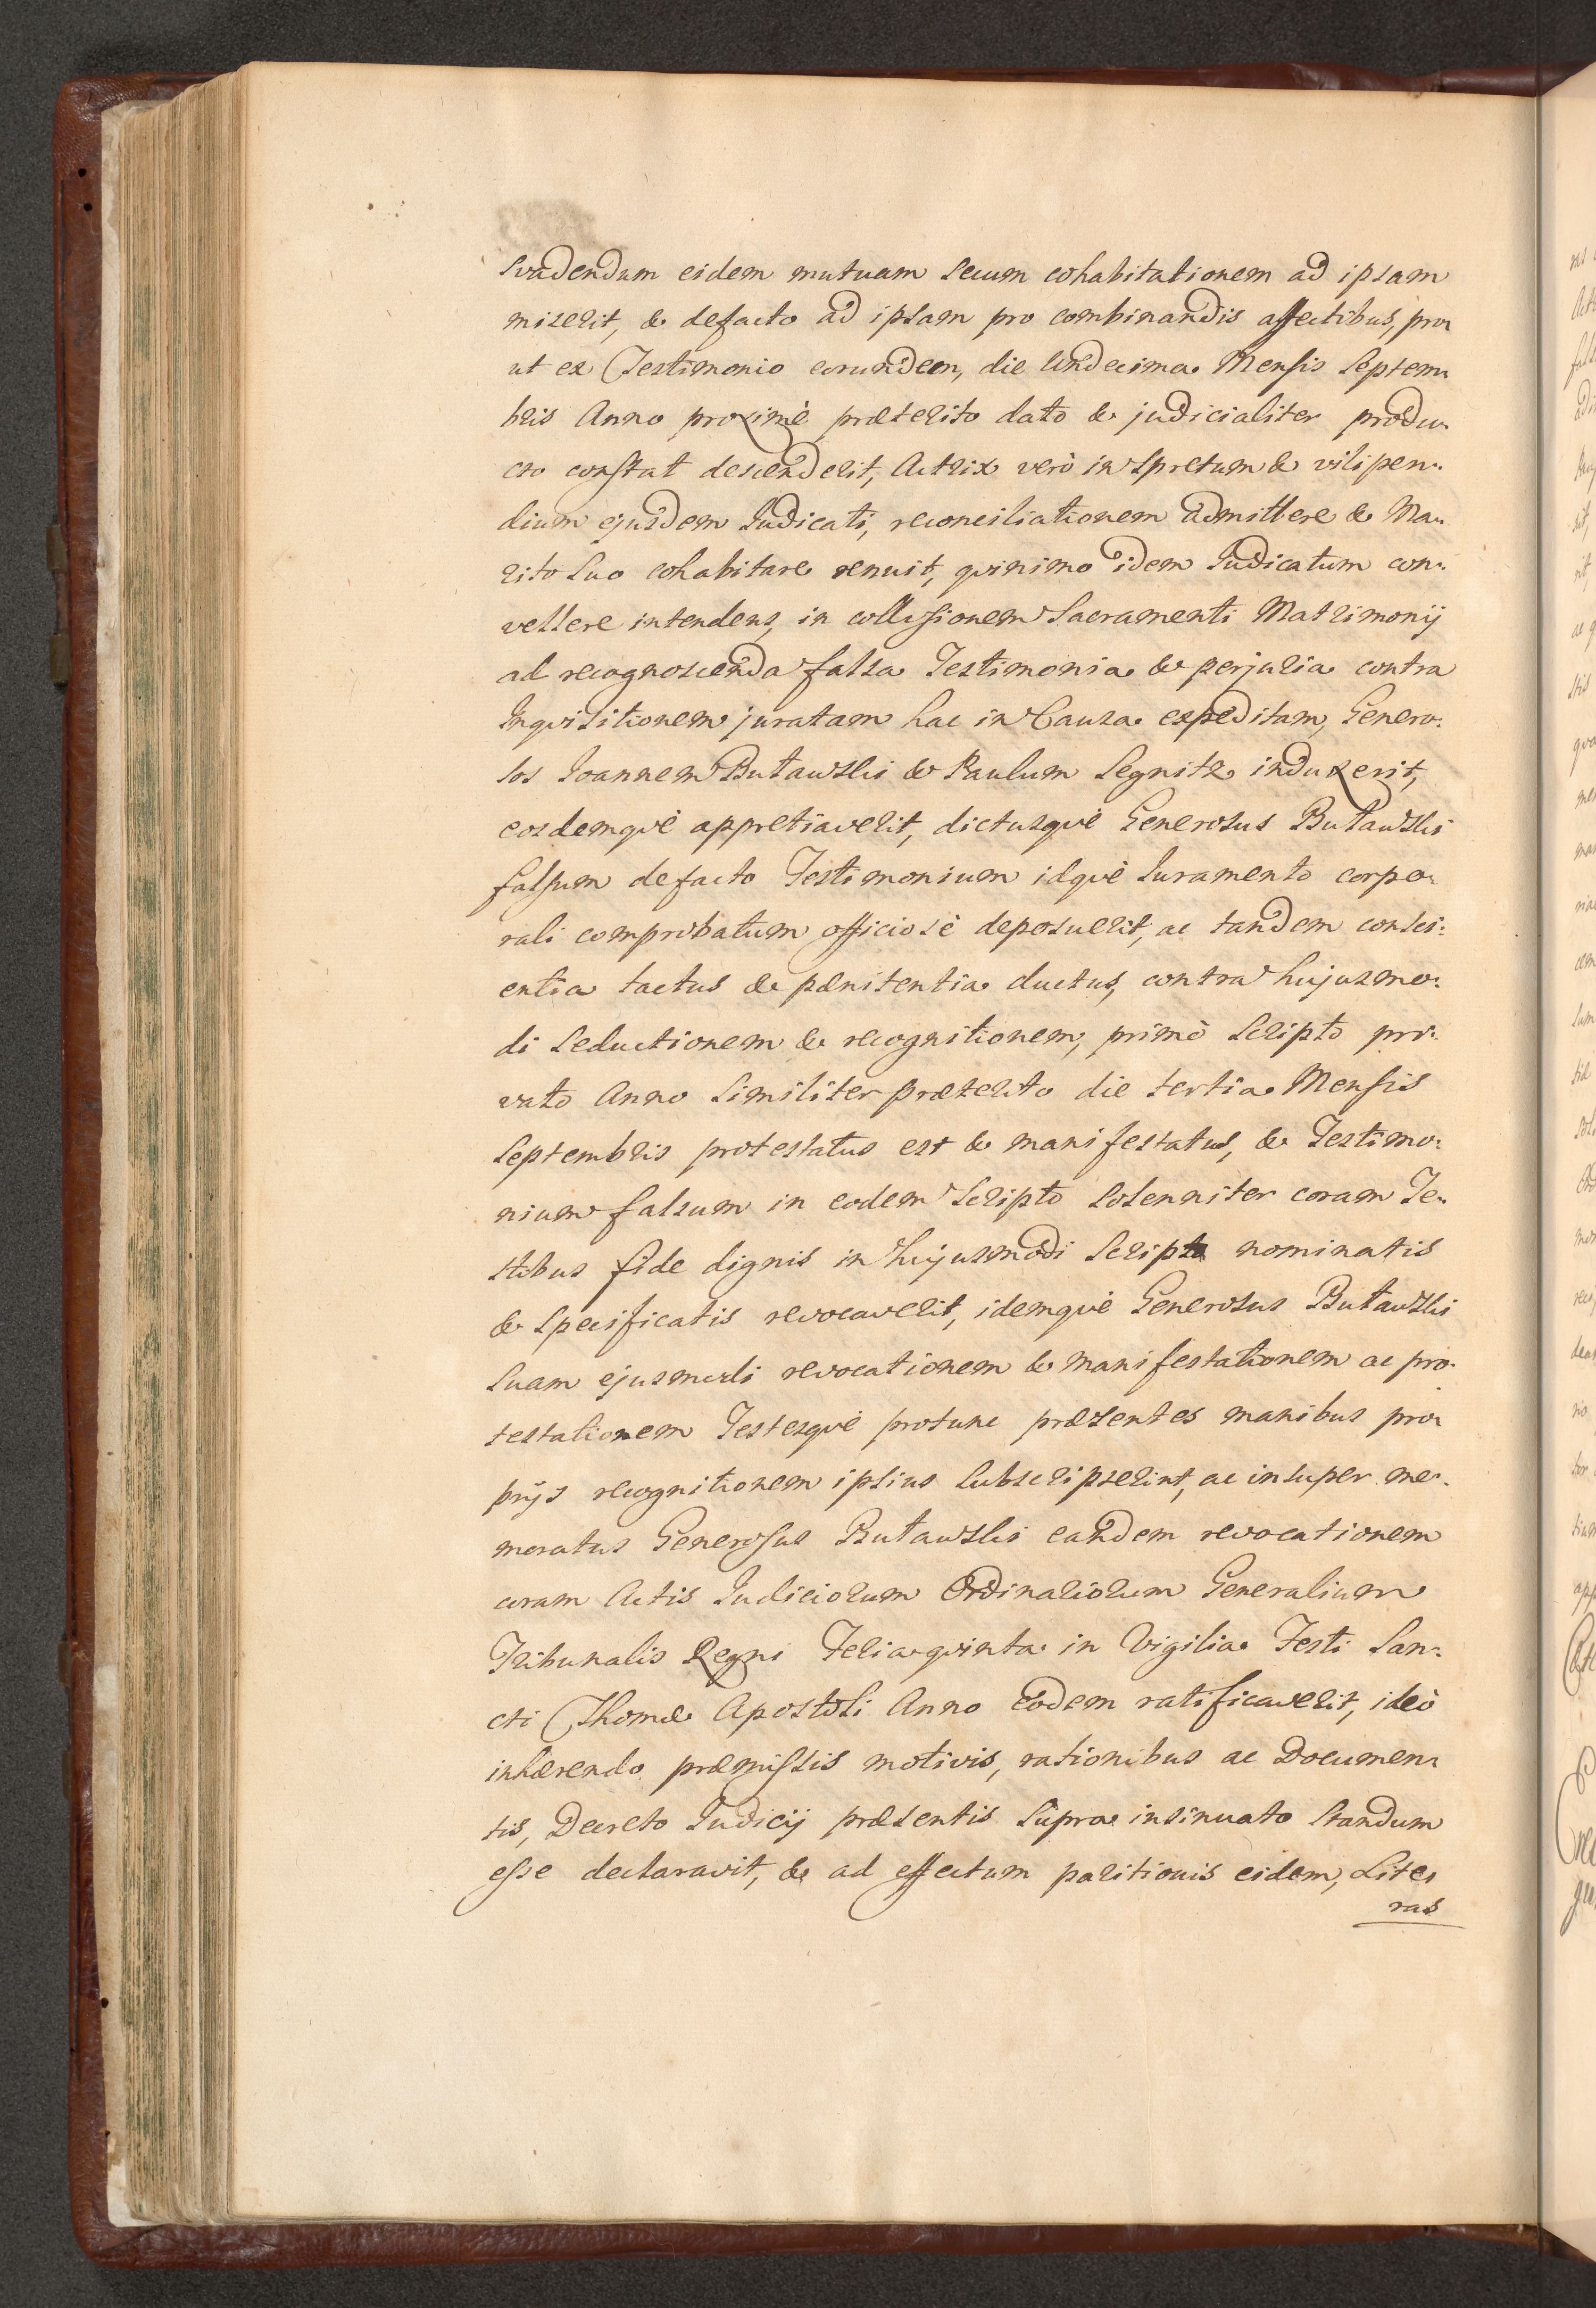 svadendam eidem mutuam secum cohabitationem ad ipsam
miserit, & defacto ad ipsam pro combinandis affectibus, pro-
ut ex Testimonio eorundem, die Undecima Mensis Septem-
bris Anno proximè præterito dato & judicialiter produ-
cto constat descenderit, Actrix verò in spretum & vilipen-
dium ejusdem Judicati, reconciliationem admittere & Ma-
rito suo cohabitare renuit, qvinimo idem Judicatum con-
vellere intendens, in collusionem Sacramenti Matrimonij
ad recognoscenda falsa Testimonia & perjuria contra
Inqvisitionem juratam hac in Causa expeditam, Genero-
sos Joannem Butawski & Paulum Segnitz induxerit,
eosdemqvè appretiaverit, dictusqvè Generosus Butawski
falsum defacto Testimonium idqvè Juramento corpo-
rali comprobatum officiosè deposuerit, ac tandem consci-
entia tactus & pænitentia ductus, contra hujusmo-
di seductionem & recognitionem, primò Scripto pri-
vato Anno similiter præterito die tertia Mensis
Septembris protestatus est & manifestatus, & Testimo-
nium falsum in eodem Scripto solenniter coram Te-
stibus fide dignis in hujusmodi Scripto nominatis
& specificatis revocaverit, idemqvè Generosus Butawski
suam ejusmodi revocationem & manifestationem ac pro-
testationem Testesqvè protunc præsentes manibus pro-
prijs recognitionem ipsius subscripserint, ac insuper me-
moratus Generosus Butawski eandem revocationem
coram Actis Judiciorum Ordinariorum Generalium
Tribunalis Regni Feria qvinta in Vigilia Festi San-
cti Thomæ Apostoli Anno eodem ratificaverit, ideò
inhærendo præmissis motivis, rationibus ac Documen-
tis, Decreto Judicij præsentis supra insinuato standum
esse declaravit, & ad effectum paritionis eidem, Lite-
ras